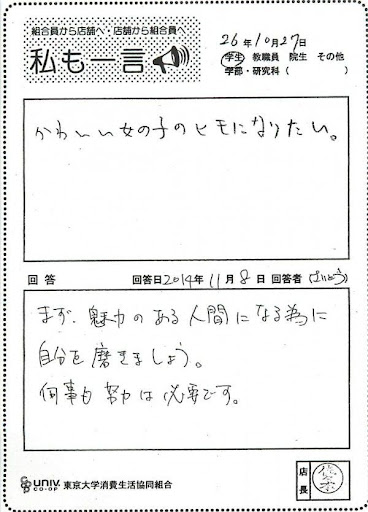 組合員から店舗へ・店舗から組合員へ
私も一言
26年10月27日
学生 教職員 院生 その他
学部・研究科( )
かわいい女の子のヒモになりたい。
回答 回答日2014年11月8日 回答者(さいとう)
まず、魅力のある人間になる為に
自分を磨きましょう。
何事も努力は必要です。
UNIV. CO-OP 東京大学消費生活協同組合
店長